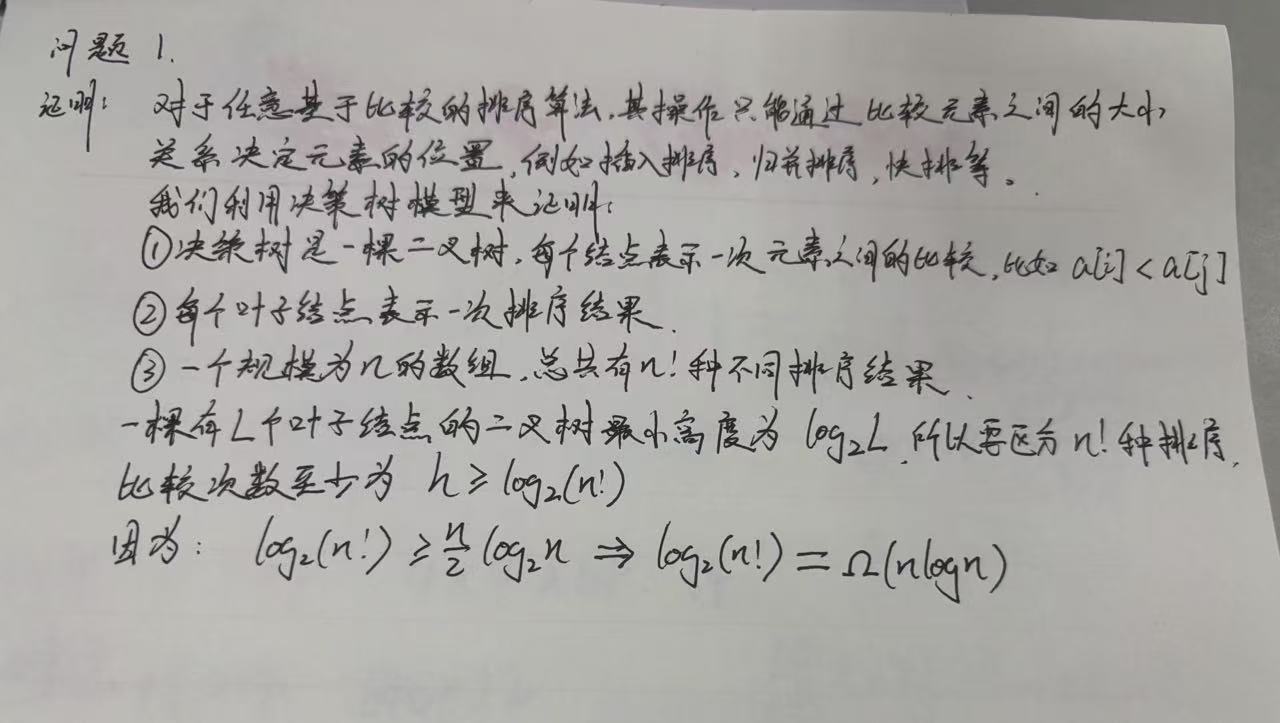 问题 1.
证明: 对于任意基于比较的排序算法,其操作只能通过比较元素之间的大小
关系决定元素的位置,例如插入排序、归并排序,快排等。
我们利用决策树模型来证明:
①决策树是一棵二叉树,每个结点表示一次元素之间的比较,比如 a[i] < a[j]
②每个叶子结点表示一次排序结果.
③一个规模为n的数组,总共有n!种不同排序结果.
一棵有L个叶子结点的二叉树最小高度为 log₂L,所以要区分n!种排序,
比较次数至少为 h ≥ log₂(n!)
因为: log₂(n!) ≥ n/2 log₂n ⇒ log₂(n!) = Ω(nlogn)